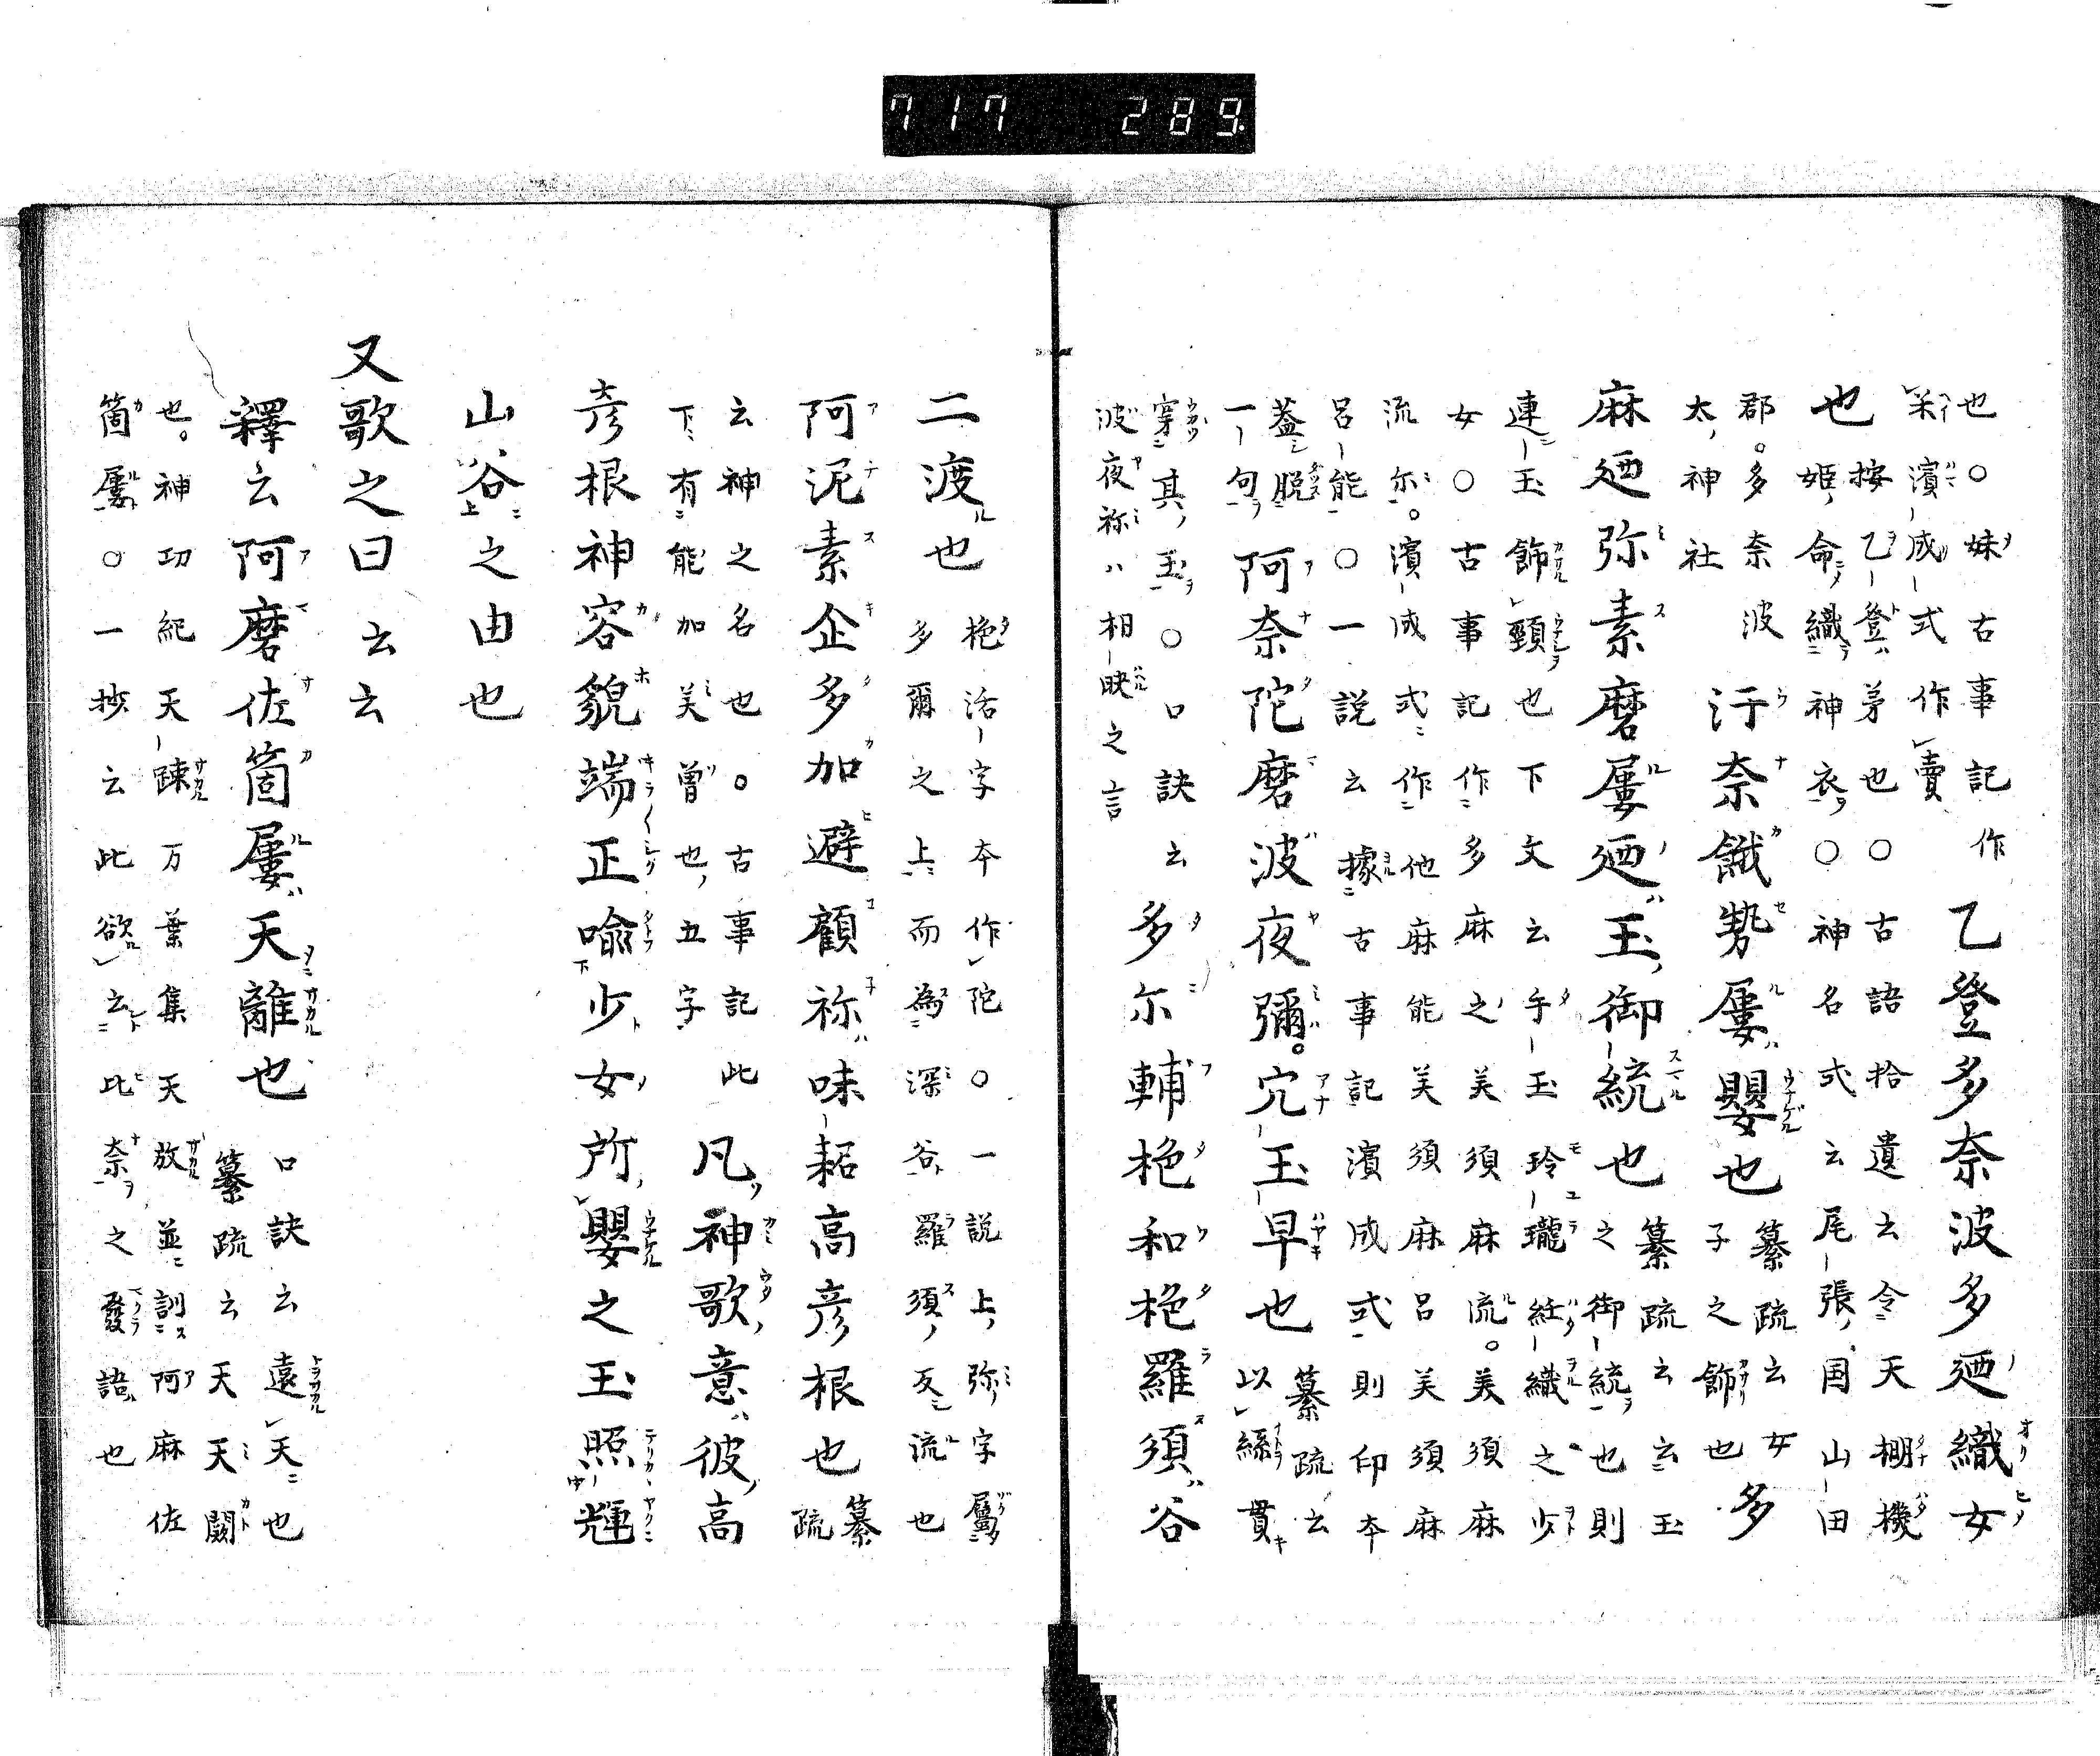 717 289
也○妹古事記作
𣑥濱成式作賣
乙登多奈波多廼織女
也
按乙登ハ茅也○古語拾遺云令天棚機
姫命織神衣○神名式云尾張国山田
郡多奈波
太神社
汙奈餓勢屢ハ嬰也
纂疏云女
子之飾也
多
麻廼弥素磨屢廼ハ玉御統也
纂疏云云玉
之御統也則
連玉飾頸也下文云手玉玲瓏紝織之少
女○古事記作多麻之美須麻流美須麻
流尔濱成式作他麻能美須麻呂美須麻
呂能○一説云據古事記濱成式則印本
蓋脱
一句
阿奈陀磨波夜彌穴玉早也
纂疏云
以絲貫
穿其玉○口訣云
波夜祢ハ相映之言
多尓輔柂和柂羅須ハ谷
二渡也
柂活字本作陀○一説上弥字屬
多爾之上而為深谷羅須反流也
阿泥素企多加避顧祢ハ味耜高彦根也
纂
疏
云神之名也古事記此
下有能加美曽也五字
凡神歌意ハ彼高
彦根神容貌端正喩少女所嬰之玉照輝
山谷之由也
又歌之曰云云
釋云阿磨佐箇屢ハ天離也
口訣云遠天也
纂疏云天天闕
也神功紀天疎万葉集天放並訓阿麻佐
箇屢○一抄云此欲云比奈之發語也